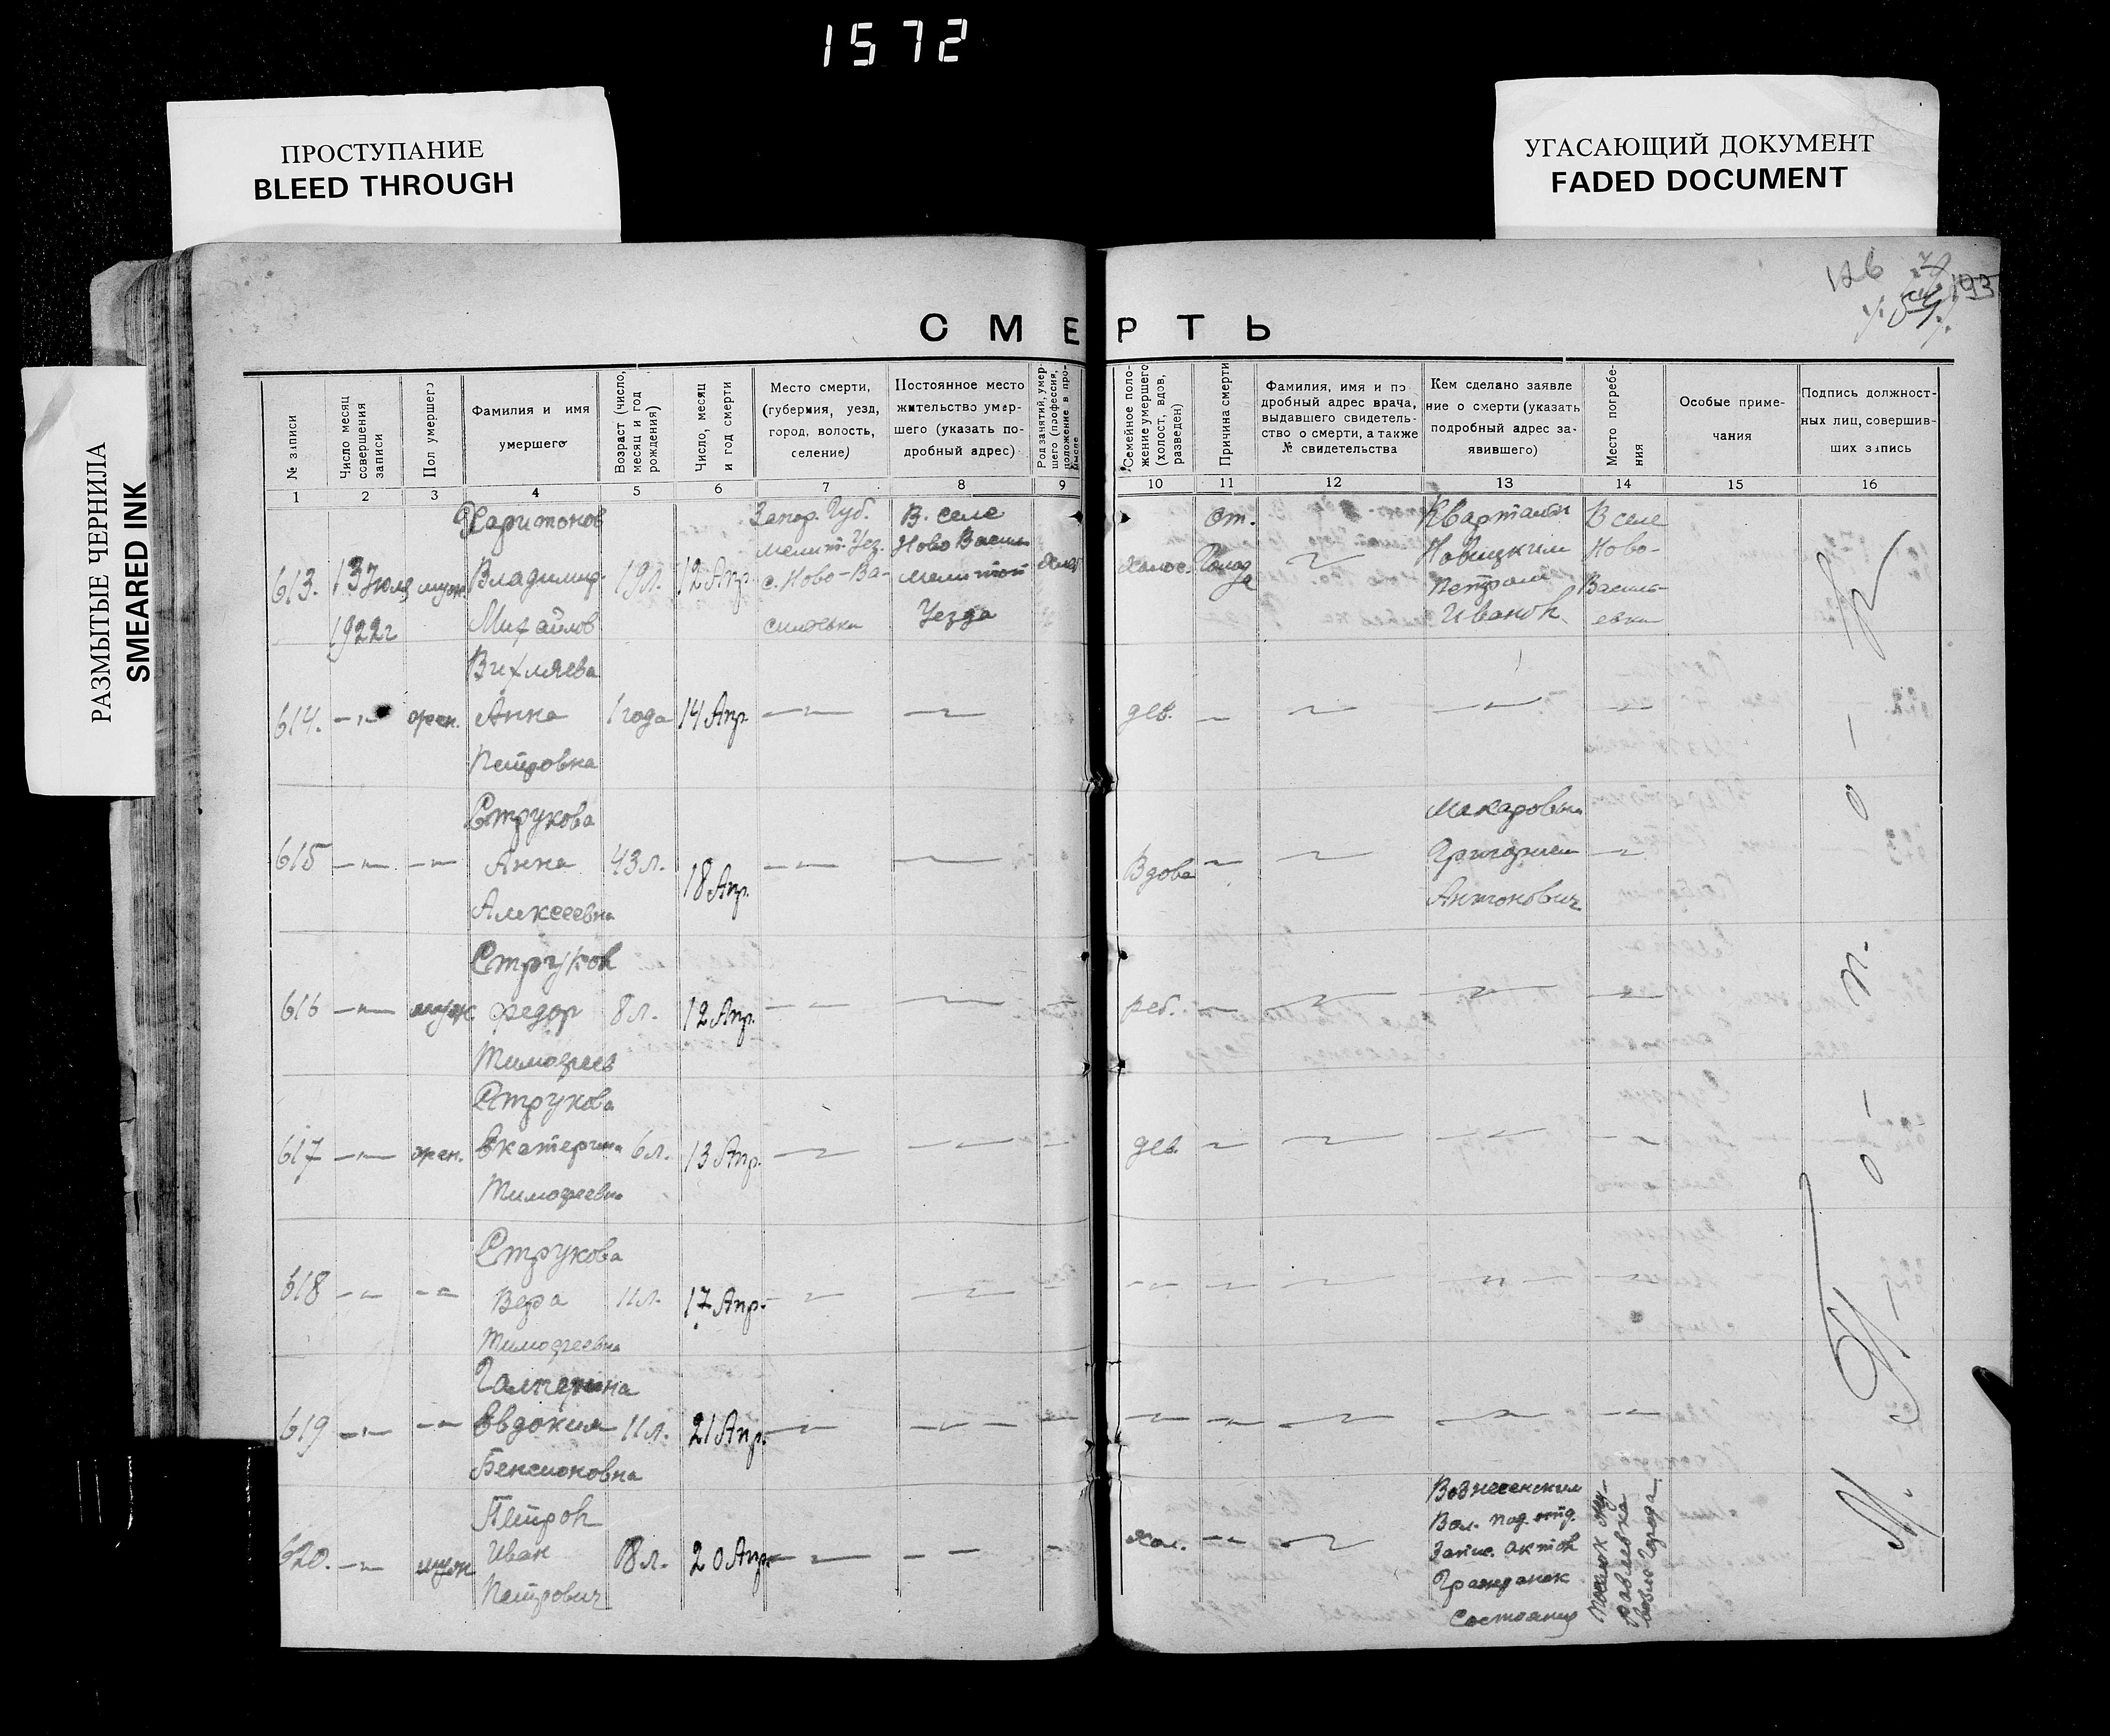 1572
ПРОСТУПАНИЕ
BLEED THROUGH
УГАСАЮЩИЙ ДОКУМЕНТ
FADED DOCUMENT
РАЗМЫТЫЕ ЧЕРНИЛА
SMEARED INK
126
193
СМЕРТЬ
№ записи
Число месяц
совершения
записи
Пол умершего
Фамилия и имя
умершего
Возраст (число,
месяц и год
рождения)
Число, месяц
и год смерти
Место смерти,
(губерния, уезд,
город, волость,
селение)
Постоянное место
жительство умер-
шего (указать по-
дробный адрес)
Род занятий, умер-
шего (профессия,
положение в про-
мысле
Семейное поло-
жение умершего
(холост, вдов,
разведен)
Причина смерти
Фамилия, имя и по
дробный адрес врача,
выдавшего свидетель-
ство о смерти, а также
№ свидетельства
Кем сделано заявле
ние о смерти (указать
подробный адрес за-
явившего)
Место погребе-
ния
Особые приме-
чания
Подпись должност-
ных лиц, совершив-
ших запись
1 2 3 4 5 6 7 8 9 10 11 12 13 14 15 16
613.
13 Июля
1922г
муж.
Харитонов
Владимир
Михайлов
19л.
12 Апр.
Запор. Губ.
Мелит. Уез.
с. Ново-Ва-
сильевки
В. селе
Ново Васил
Мелитоп
Уезда
Холос.
От.
Голод
а
Новицким
Петром
Иванов.
В селе
Ново-
Василь-
евки
614. — „ — жен.
Вихляева
Анна
Петровна
1 года
14 Апр.
— „ —
дев.
615 — „ — — „ —
Струкова
Анна
Алексеевна
43л.
18 Апр.
— „ —
Вдова
Григорием
Антонович
616 — „ — муж
Струков
Федор
Тимофеев
8л.
12 Апр.
— „ —
реб.
617 — „ — жен.
Струкова
Екатерина
Тимофеевна
6л.
13 Апр.
— „ —
дев.
618 — „ — — „ —
Струкова
Вера
Тимофеевна
11л.
17 Апр.
— „ —
619 — „ — — „ —
Гальперина
Евдокия
Бенсионовна
11л.
21 Апр.
— „ —
620. — „ — муж
Петров
Иван
Петрович
18л.
20 Апр.
— „ —
хол.
Вознесенским
Вол. под. отд.
Запис. актов
Гражданск
Состояния